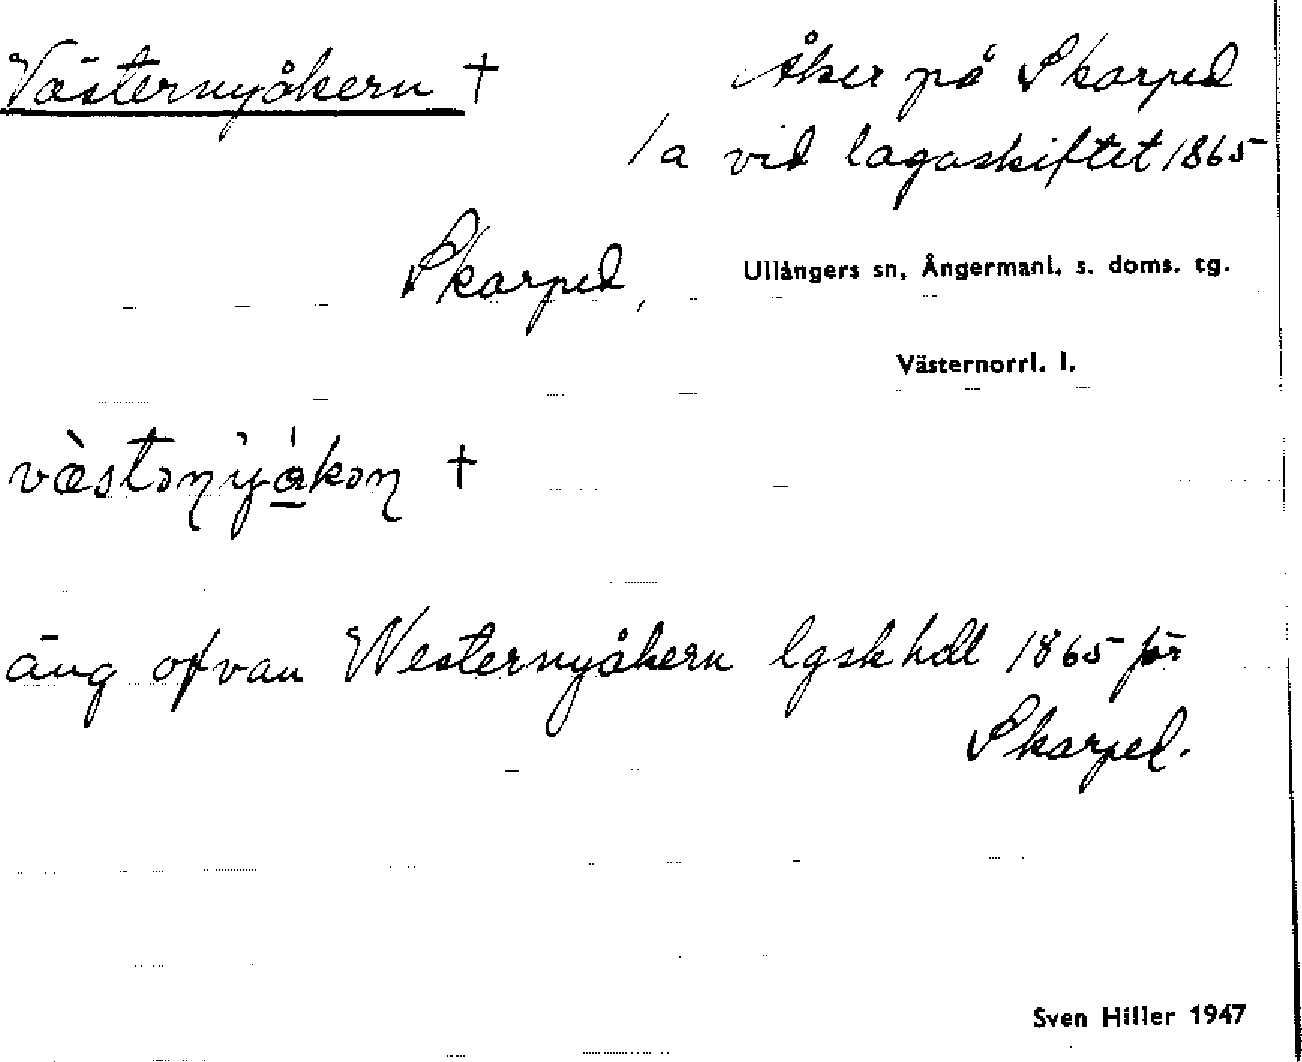 Västernyåkern †
Åker på Skarped
/a vid lagaskiftet 1865
Skarped,
Ullångers sn, Ångermanl. s. doms. tg.
Västernorrl. l.
†
äng ofvan Westernyåkern lgskhdl 1865 för
Skarped.
Sven Hiller 1947